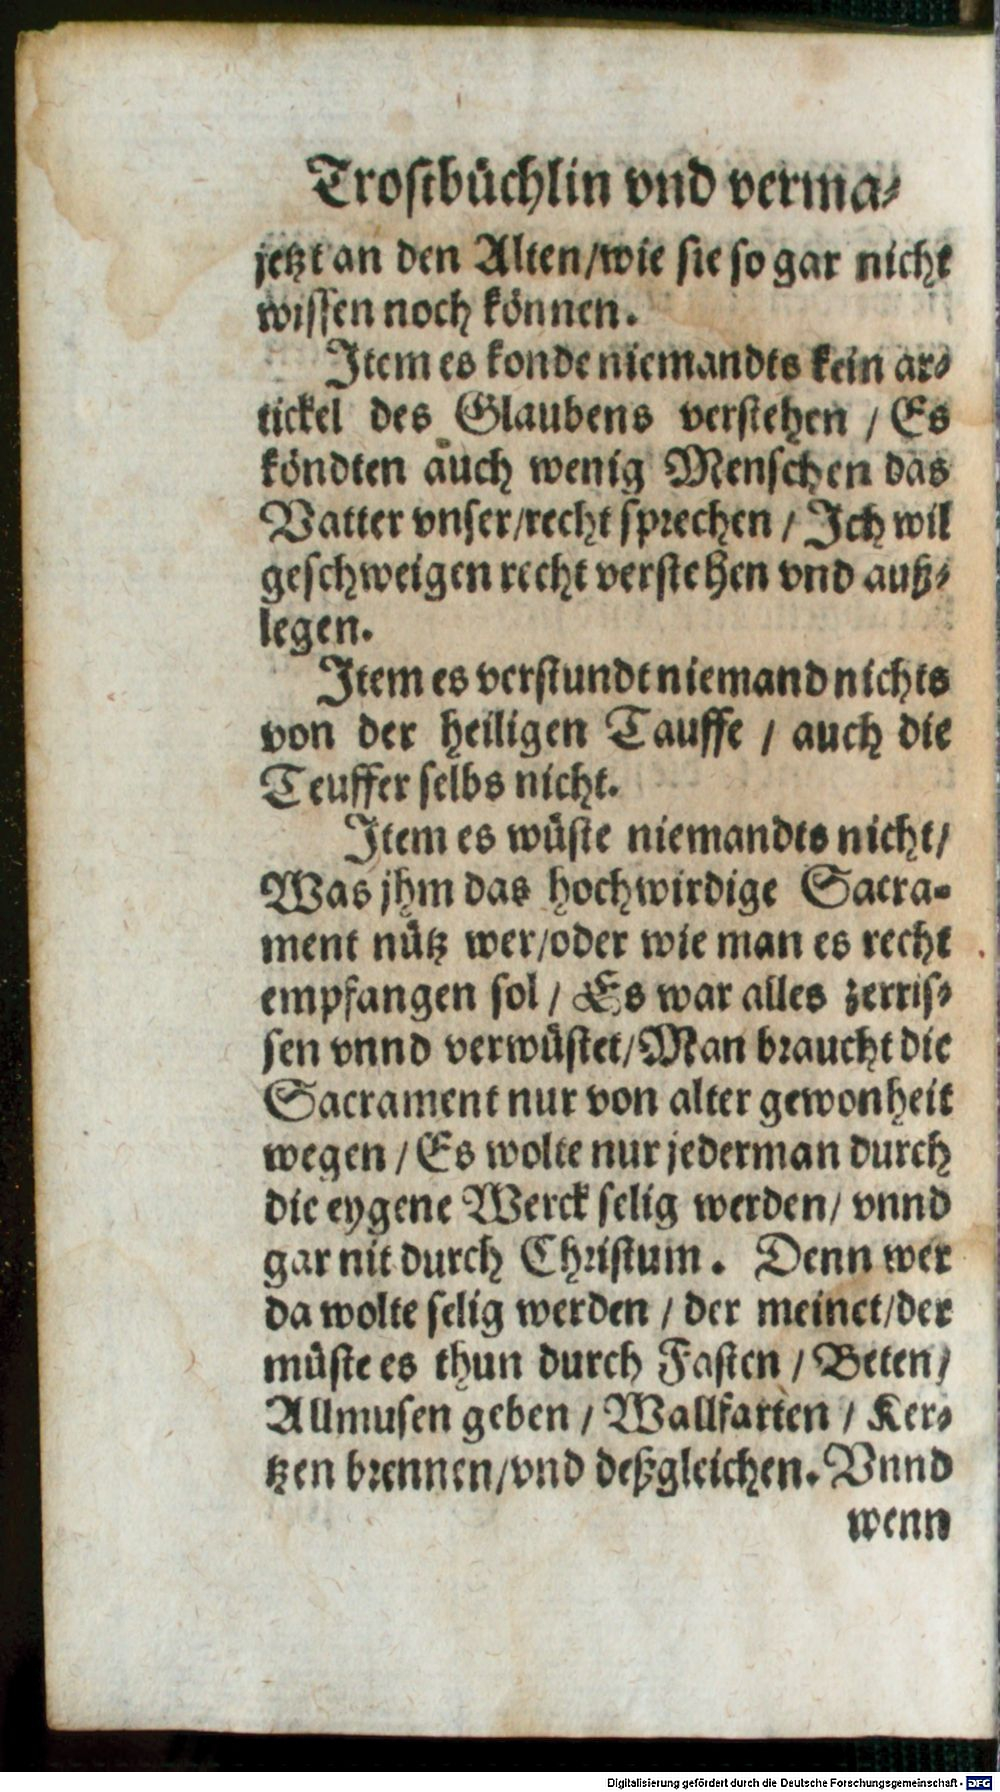 Trostbüchlin vnd verma⸗
jetzt an den Alten/wie sie so gar nicht
wissen noch können.
Item es konde niemandts kein ar⸗
tickel des Glaubens verstehen / Es
köndten auch wenig Menschen das
Vatter vnser/recht sprechen / Ich wil
geschweigen recht verstehen vnd auß⸗
legen.
Item es verstundt niemand nichts
von der heiligen Tauffe / auch die
Teuffer selbs nicht.
Item es wüste niemandts nicht/
Was jhm das hochwirdige Sacra⸗
ment nütz wer/oder wie man es recht
empfangen sol / Es war alles zerris⸗
sen vnnd verwüstet/Man braucht die
Sacrament nur von alter gewonheit
wegen / Es wolte nur jederman durch
die eygene Werck selig werden/ vnnd
gar nit durch Christum. Denn wer
da wolte selig werden / der meinet/der
müste es thun durch Fasten / Beten/
Allmusen geben / Wallfarten / Ker⸗
tzen brennen/vnd deßgleichen. Vnnd
wenn
Digitalisierung gefördert durch die Deutsche Forschungsgemeinschaft - DFG